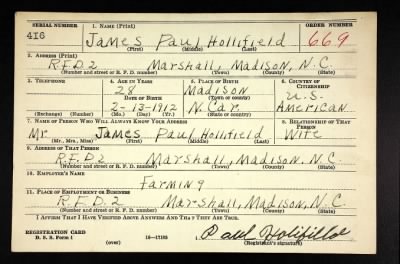 SERIAL NUMBER 1. NAME (Print) ORDER NUMBER
416 James Paul Hollifield 669
(First) (Middle) (Last)
2. ADDRESS (Print)
R.F.D.2 Marshall, Madison, N.C.
(Number and street or R. F. D. number) (Town) (County) (State)
3. TELEPHONE 4. AGE IN YEARS 5. PLACE OF BIRTH 6. COUNTRY OF CITIZENSHIP
28 Madison U.S.
DATE OF BIRTH (Town or county)
2-13-1912 N.Car American
(Exchange) (Number) (Mo.) (Day) (Yr.) (State or country)
7. NAME OF PERSON WHO WILL ALWAYS KNOW YOUR ADDRESS 8. RELATIONSHIP OF THAT PERSON
Mr James Paul Hollifield Wife
(Mr., Mrs., Miss) (First) (Middle) (Last)
9. ADDRESS OF THAT PERSON
R.F.D2 Marshall, Madison, N.C.
(Number and street or R. F. D. number) (Town) (County) (State)
10. EMPLOYER'S NAME
Farming
11. PLACE OF EMPLOYMENT OR BUSINESS
R.F.D.2 Marshall, Madison, N.C.
(Number and street or R. F. D. number) (Town) (County) (State)
I AFFIRM THAT I HAVE VERIFIED ABOVE ANSWERS AND THAT THEY ARE TRUE.
REGISTRATION CARD
D. S. S. Form 1 16-17105 Paul
(over) (Registrant's signature)